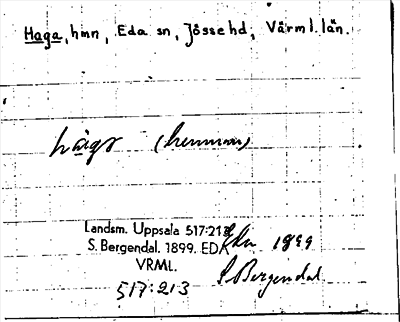 Haga, hmn, Eda sn, Jösse hd, Värml. län.
(hemman)
Landsm. Uppsala 517:213
S. Bergendal. 1899. EDA
VRML.
Eda 1899
S Bergendal
517:213